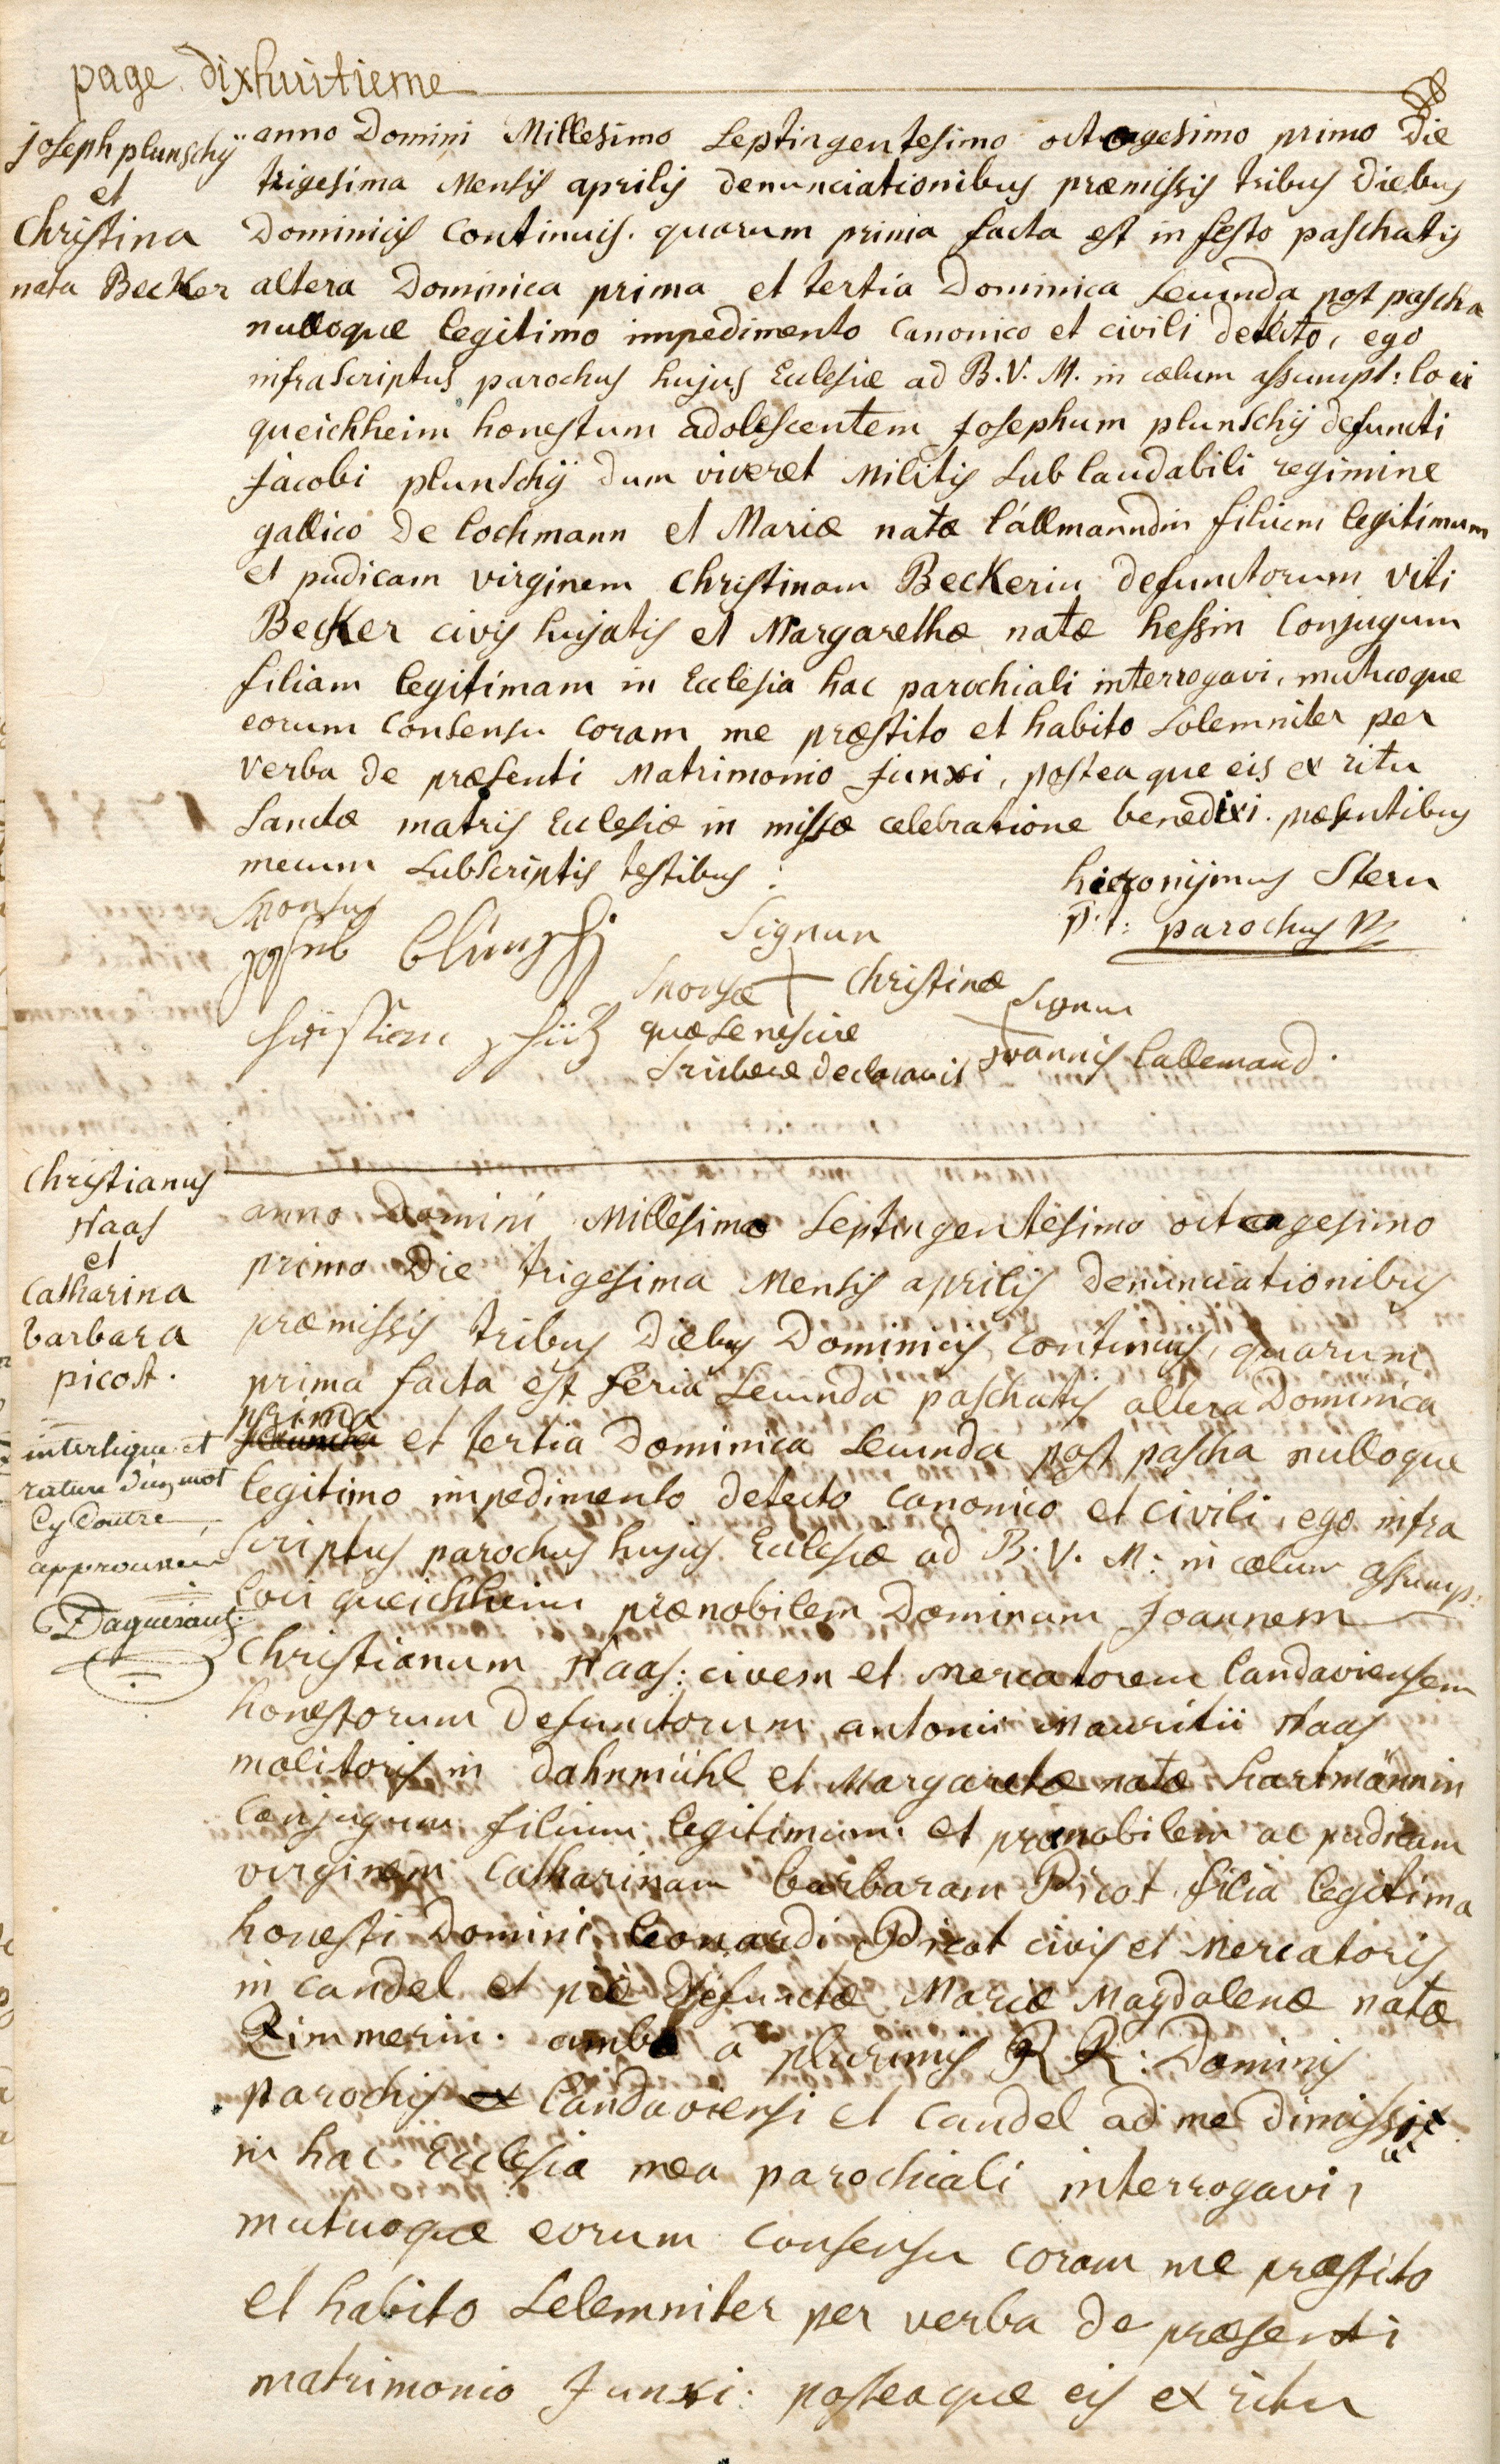 page dixhuitieme
joseph plunschÿ
et
Christina
nata Becker
anno Domini Millesimo Septingentesimo octogesimo primo Die
trigesima Mensis aprilis denunciationibus præmissis tribus Diebus
Dominicis Continuis. quarum prima facta est in festo paschatis
altera Dominica prima et tertia Dominica Secunda post pascha
nulloque legitimo impedimento Canonico et civili detecto, ego
infrascriptus parochus hujus Ecclesiæ ad B. V. M. in cœlum assumpt: loci
queichheim honestum adolescentem Josephum plunschÿ defuncti
Jacobi plunschÿ dum viveret Militis Sub laudabili regimine
gallico De lochmann et Mariæ natæ lállmanndin filium legitimum
et pudicam virginem Christinam Beckerin defunctorum viti
Becker civis hujatis et Margarethæ natæ hessin Conjugum
filiam legitimam in Ecclesia hac parochiali interrogavi, mutuoque
eorum Consensu coram me præstito et habito Solemniter per
verba de præsenti Matrimonio junxi, posteaque eis ex ritu
Sanctæ matris Ecclesiæ in missæ celebratione benedixi. præsentibus
mecum Subscriptis testibus :
hieronijmus Stern
p: t: parochus
Sponsus
Signum
Sponsæ + Christinæ
quæ se nescire
Scribere declaravit
Signum
Joannis lallemand.
Christianus
Haas
et
Catharina
barbara
picot.
anno Domini Millesimo Septingentesimo octogesimo
primo Die trigesima Mensis aprilis Denunciationibus
præmissis tribus Diebus Dominicis continuis, quarum
prima facta est feria Secunda paschatis altera Dominica
prima
secunda et tertia Dominica Secunda post pascha nulloque
legitimo impedimento detecto canonico et civili, ego infra
scriptus parochus hujus Ecclesiæ ad B. V. M: in cœlum assump:
loci queichheim prænobilem Dominum Joannem
Christianum Haas: civem et Mercatorem landaviensem
honestorum Defunctorum antonii Mauritii Haas
molitoris in Dahnmühl et Margaretæ natæ hartmännin
Conjugum filium legitimum et prænobilem ac pudicam
virginem Catharinam barbaram Picot filia legitima
honesti Domini leonardi Picot civis et Mercatoris
in candel et pie Defunctæ Mariæ Magdalenæ natæ
Zimmerin. ambo a plurimis R R: Dominis
parochis landaviensi et candel ad me dimissi
in hac Ecclesia mea parochiali interrogavi,
mutuoque eorum Consensu coram me præstito
et habito Selemniter per verba de præsenti
matrimonio Junxi: posteaque eis ex ritu
interligne et
rature d'un mot
Cy Contre
approuvee
Daguesault